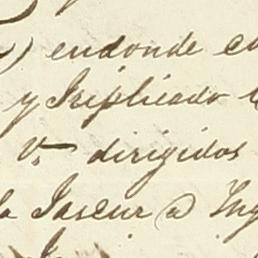 ) endonde
y Triplicado
Vs dirigidos
la Jascur a Ing